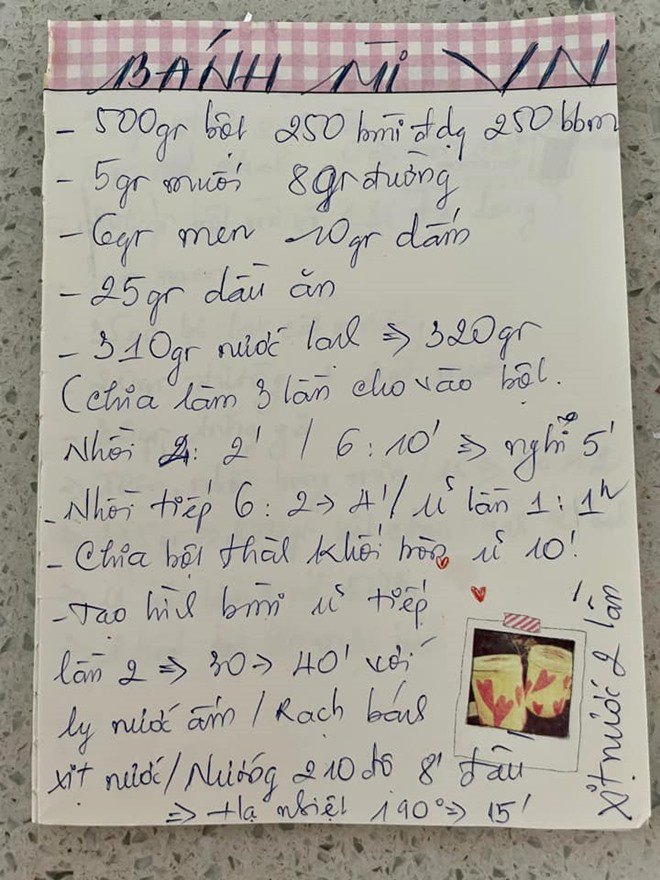 BÁNH MÌ VN
- 500gr bột 250 bmì đdạ 250 bbm
- 5gr muối 8gr đường
- 6gr men 10gr dấm
- 25gr dầu ăn
- 310gr nước lạnh => 320gr
(chia làm 3 lần cho vào bột.
Nhồi 2: 2' / 6: 10' => nghỉ 5'
- Nhồi tiếp 6: 2 -> 4' / ủ lần 1: 1h
- Chia bột thành khối tròn ủ 10'
- Tạo hình bmì ủ tiếp
lần 2 => 30 -> 40' với
ly nước ấm / Rạch bánh
xịt nước / Nướng 210 độ 8' đầu
=> Hạ nhiệt 190° => 15'
xịt nước 2 lần